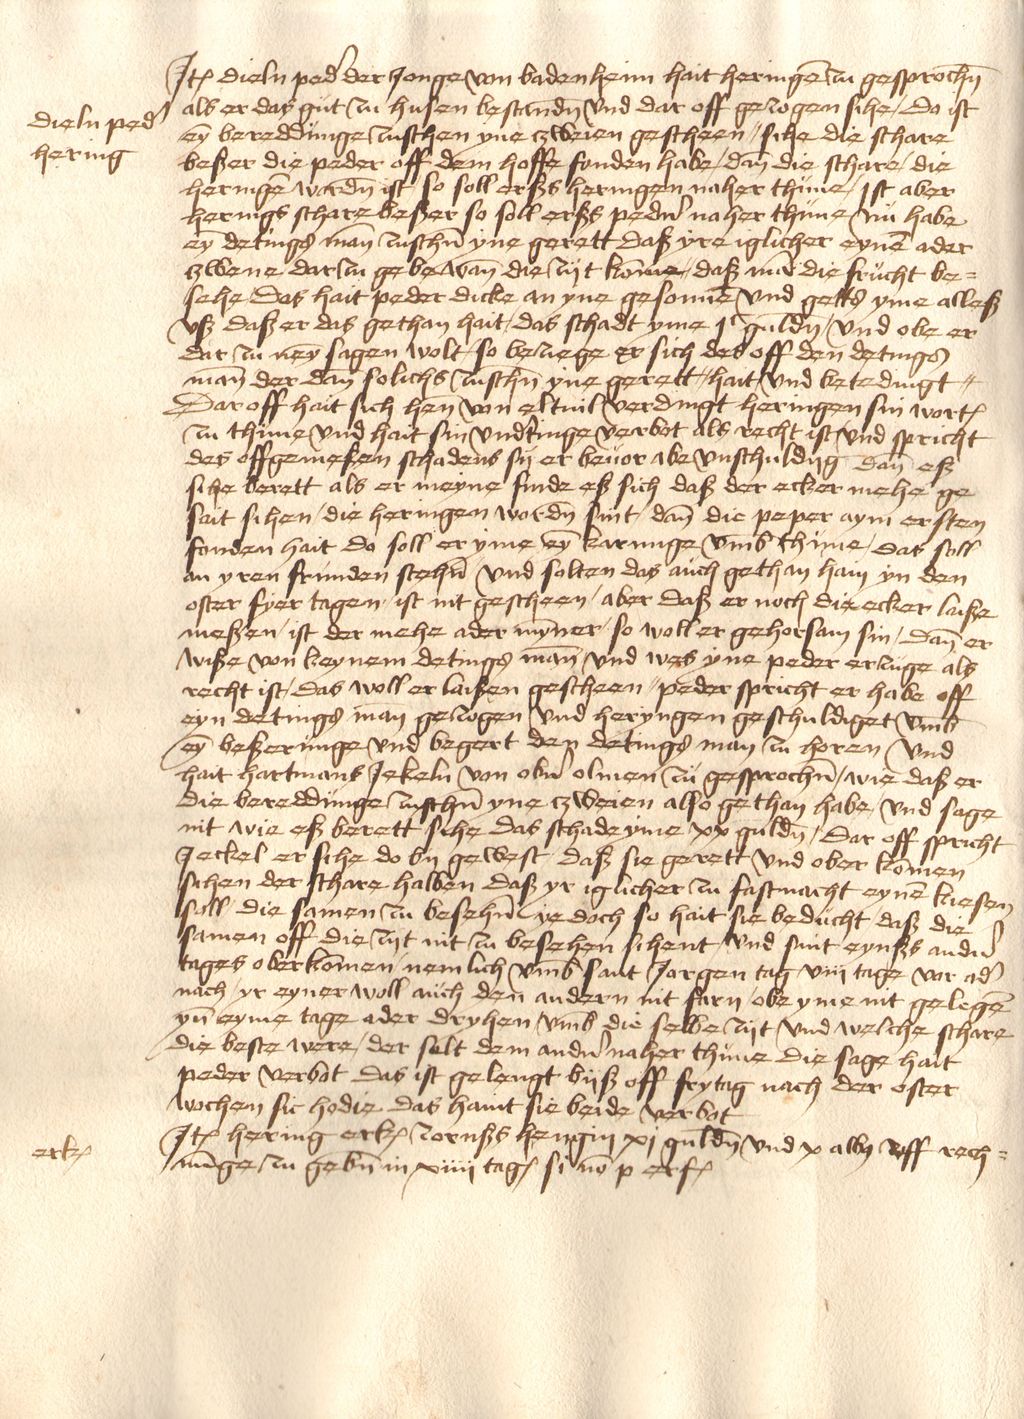 Jt(em) dieln ped(er) der Jonge von badenheim hait heringe(n) zu gesproch(e)n
dieln ped(er)
hering
als er das gut zu husen bestand(e)n und dar off gezogen sihe / Do ist
ey(n) bereddunge zuschen yne zweien gescheen // sihe die schare
beßer die peder off dem hoffe fonden habe / dan(n) die schare / die
heringe(n) word(e)n ist so soll erßs heringen naher thune / ist aber
herings schare beßer so soll erßs ped(er)n naher thune / nu habe
ey(n) detings man(n) zusch(e)n yne gerett daß yre iglicher eyne(n) ader
zwene dar zu gebe wan(n) die zijt kom(m)e / daß ma(n) die frucht be=
sehe Das hait peder dicke an yne gesonne(n) und gett(is) yme alleß
uß daß er das gethan hait / das schadt yme j guld(e)n / und obe er
dar zu ney(n) sagen wolt / so beziege er sich des off den detings
man(n) der dan(n) solichs zusch(e)n yne gerett / hait / und betedingt //
Dar off hait sich hen(n) von eltuil verdingt heringen sin wort(e)
zu thune und hait sin und(er)tinge verbot als recht ist und spricht
des offgemeßen schadens sij er bevor abe unschuldig dan(n) eß
sihe berett als er meyne finde eß sich daß der ecker mehe ge
sait sihen / die heringen word(e)n sint / dan(n) die peper aym ersten
fonden hait do soll er yme ey(n) karunge umb thune / das soll
an yren frunden stehn und solten das auch gethan hain yn den
oster fyer tagen / ist nit gescheen / aber daß er noch die ecker laiße
meßen / ist der mehe ader myner / so woll er gehorsam sin / dan(n) er
wiße von keynem detings man(n) und wes yne peder erzuge als
recht ist / das woll er laißen gescheen // peder spricht er habe off
eyn detings man gezogen und heryngen geschuldiget umb
ey(n) beßerunge und begert den detings man zu horen und
hait hartmans Jekeln von ob(er)n olmen zu gesproch(e)n / wie daß er
die bereddunge zusch(e)n yne zweien also gethan habe / und sage
nit wie eß berett sihe das schade yme xx guld(e)n / Dar off spricht
Jeckel er sihe do by gewest daß sie gerett und ober kom(m)en
sihen der schare halben daß yr iglicher zu fastnacht eyne(n) kiesen
soll die samen zu beseh(e)n ye doch so hait sie beducht / daß die
samen off die zijt nit zu besehen sihent und sint eynßs and(er)n
tages oberkom(m)en / nemlich umb sant Jorgen tag viii tage vor ad(er)
nach / yr eyner woll auch den andern nit farn / obe yme nit gelege(n)
yn eyme tage ader dryhen / umb die selbe zijt und welche schare
die beste were / der solt dem and(er)n naher thune die sage hait
peder verbot das ist gelengt byß off frytag nach der oster
wochen sic hodie das haint sie beide verbot
erk(en)
Jt(em) hering erk(en) zornßs hengin xj guld(e)n und x alb(us) uff rech=
nu(n)ge zu geb(e)n in xiiii tag(en) si no(n) p erf(olgt)